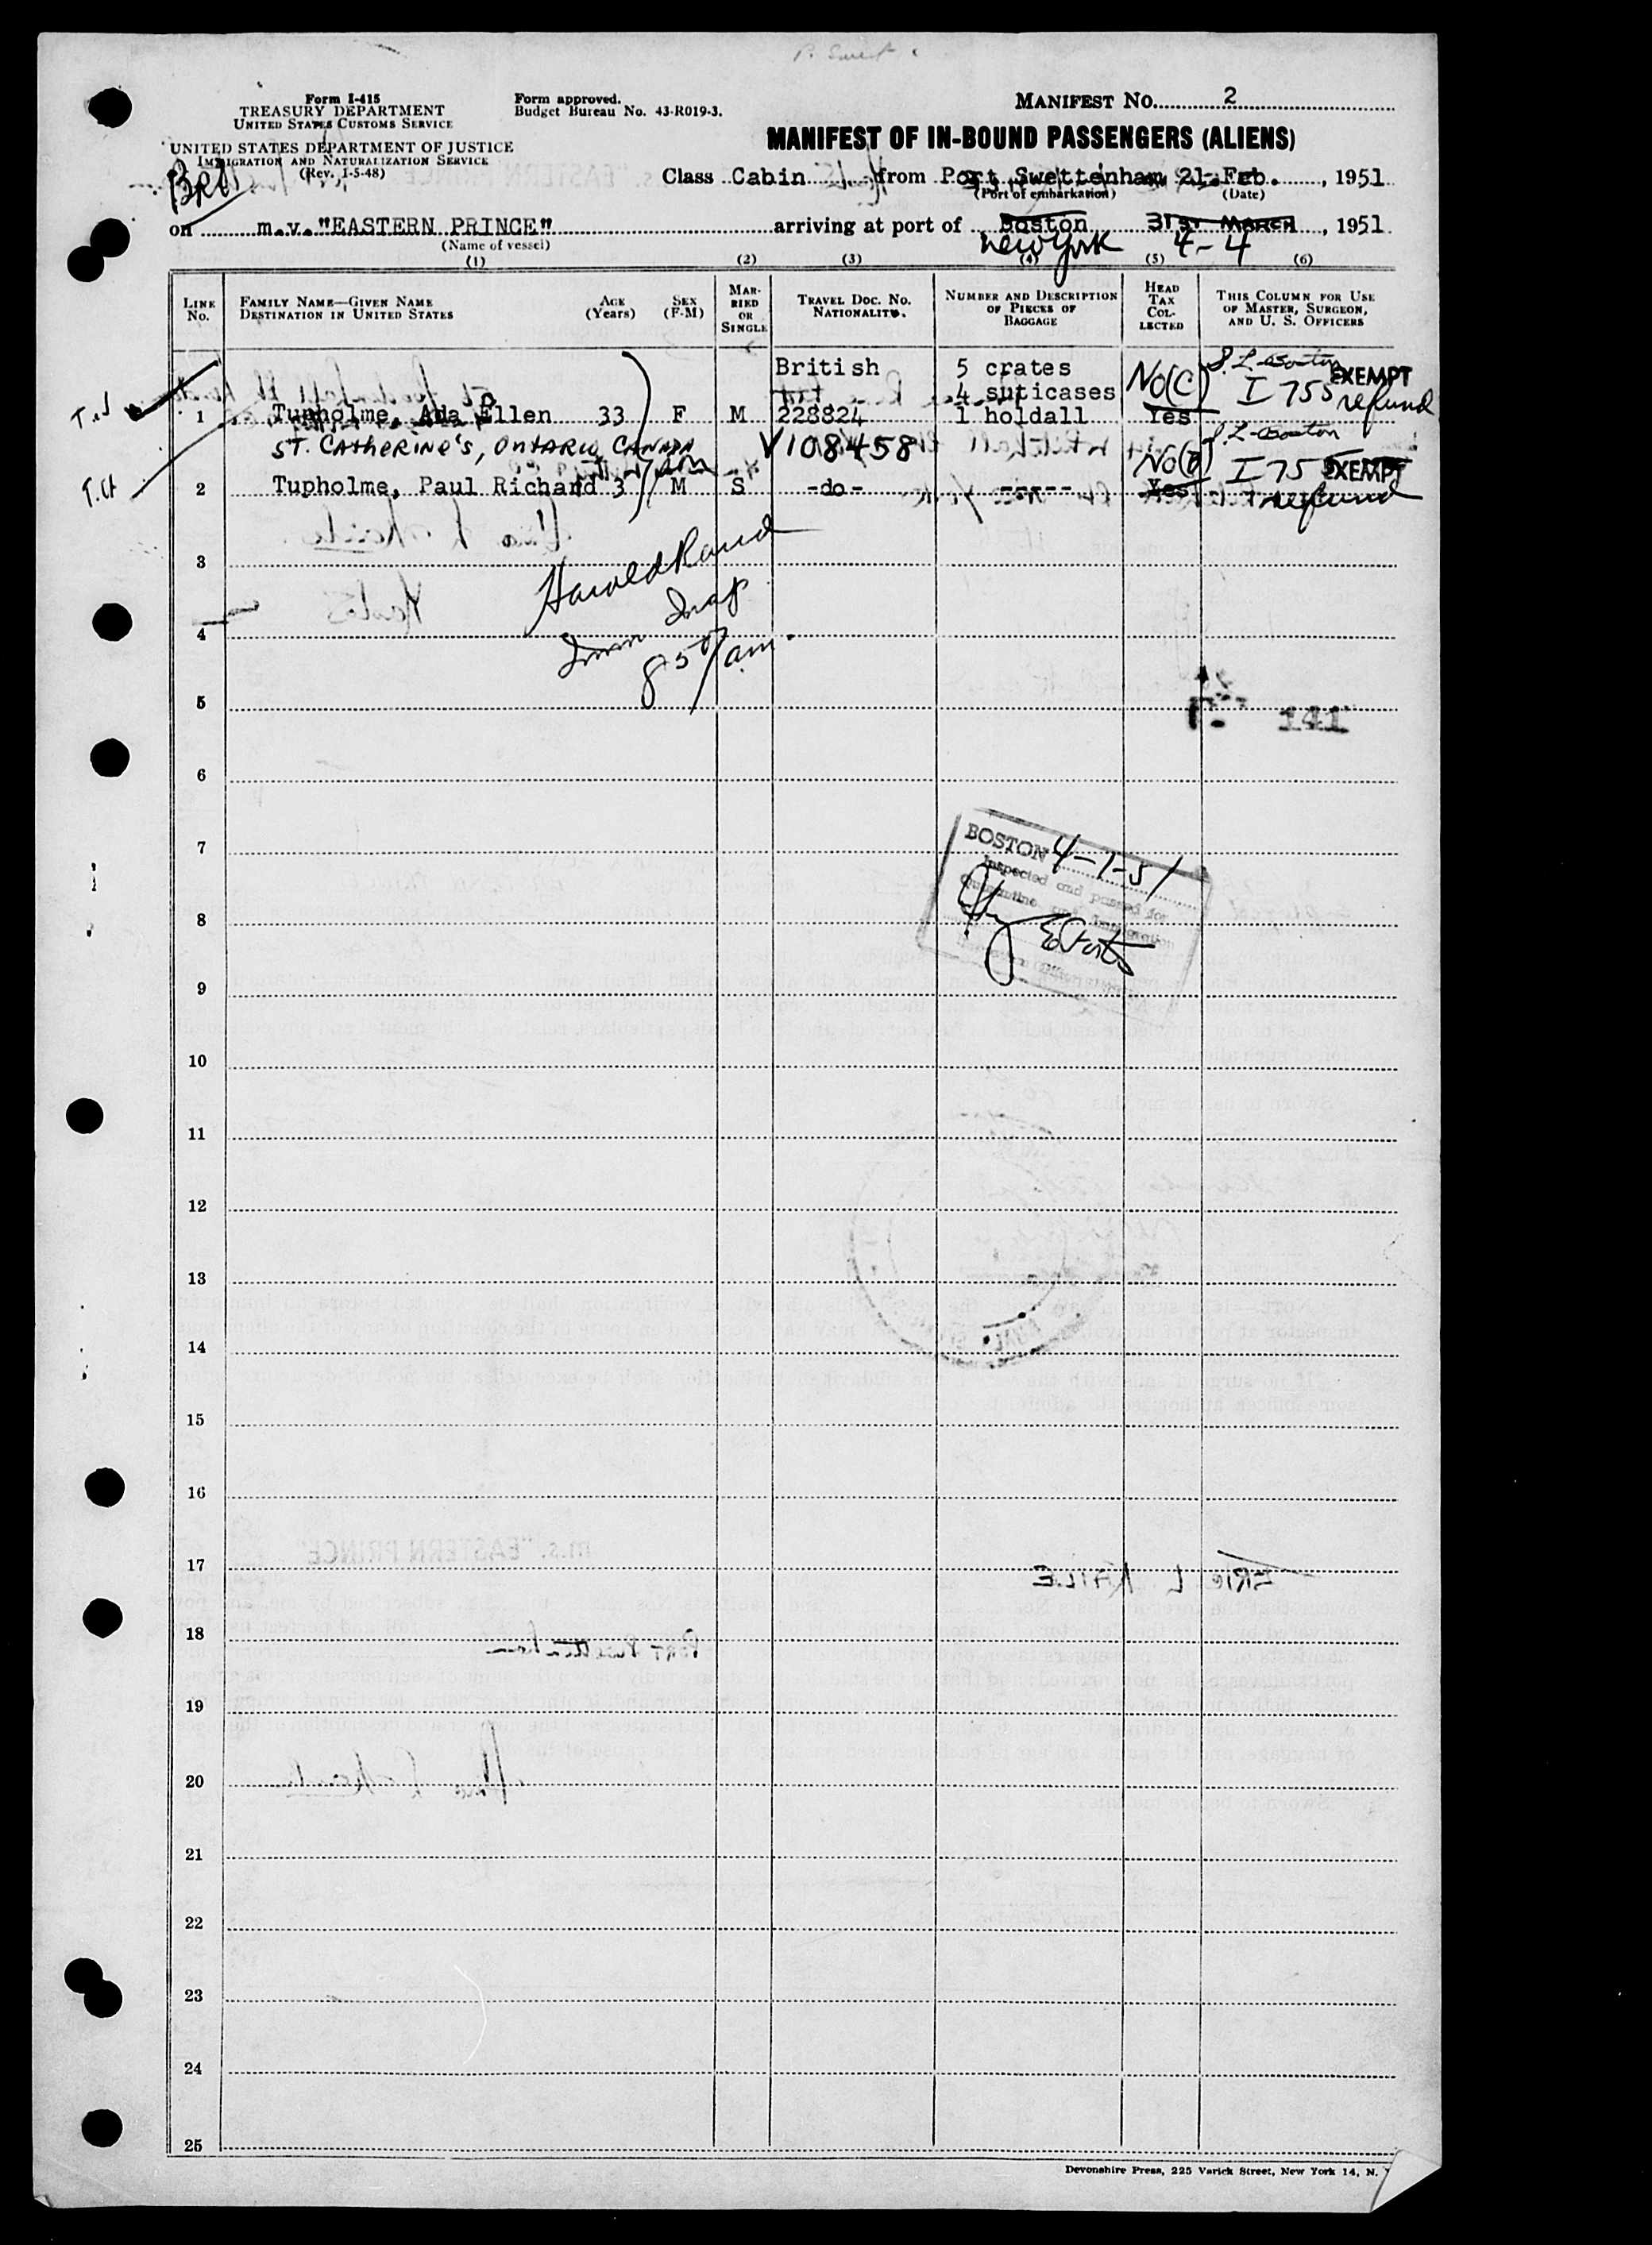 Form I-415
TREASURY DEPARTMENT
UNITED STATES CUSTOMS SERVICE
UNITED STATES DEPARTMENT OF JUSTICE
IMMIGRATION AND NATURALIZATION SERVICE
(Rev. 1-5-48)
Form approved.
Budget Bureau No. 43-R019-3.
MANIFEST NO. 2
MANIFEST OF IN-BOUND PASSENGERS (ALIENS)
Class Cabin from Port Swettenham 21. Feb. , 1951
(Port of embarkation) (Date)
on m.v."EASTERN PRINCE" arriving at port of Boston 31st MARCH , 1951
(Name of vessel)
New York 4-4
(1) (2) (3) (4) (5) (6)
LINE No.
FAMILY NAME—GIVEN NAME
DESTINATION IN UNITED STATES
AGE (Years)
SEX (F-M)
MARRIED OR SINGLE
TRAVEL DOC. NO.
NATIONALITY.
NUMBER AND DESCRIPTION OF PIECES OF BAGGAGE
HEAD TAX COLLECTED
THIS COLUMN FOR USE OF MASTER, SURGEON, AND U. S. OFFICERS
British 5 crates
4 suticases No(C) I 755 EXEMPT
1 Tupholme, Ada Ellen 33 F M 228824 1 holdall Yes refund
ST. CATHERINE'S, ONTARIO, CANADA V108458
son No I 755 EXEMPT
2 Tupholme, Paul Richard 3 M S -do- ----- Yes refund
3
Harold Rand
Imm Insp
4
8 50/am.
5
141
6
7
BOSTON 4-1-51
Inspected and passed for
Quarantine and Immigration
8
9
10
11
12
13
14
15
16
17
18
19
20
21
22
23
24
25
Devonshire Press, 225 Varick Street, New York 14, N.